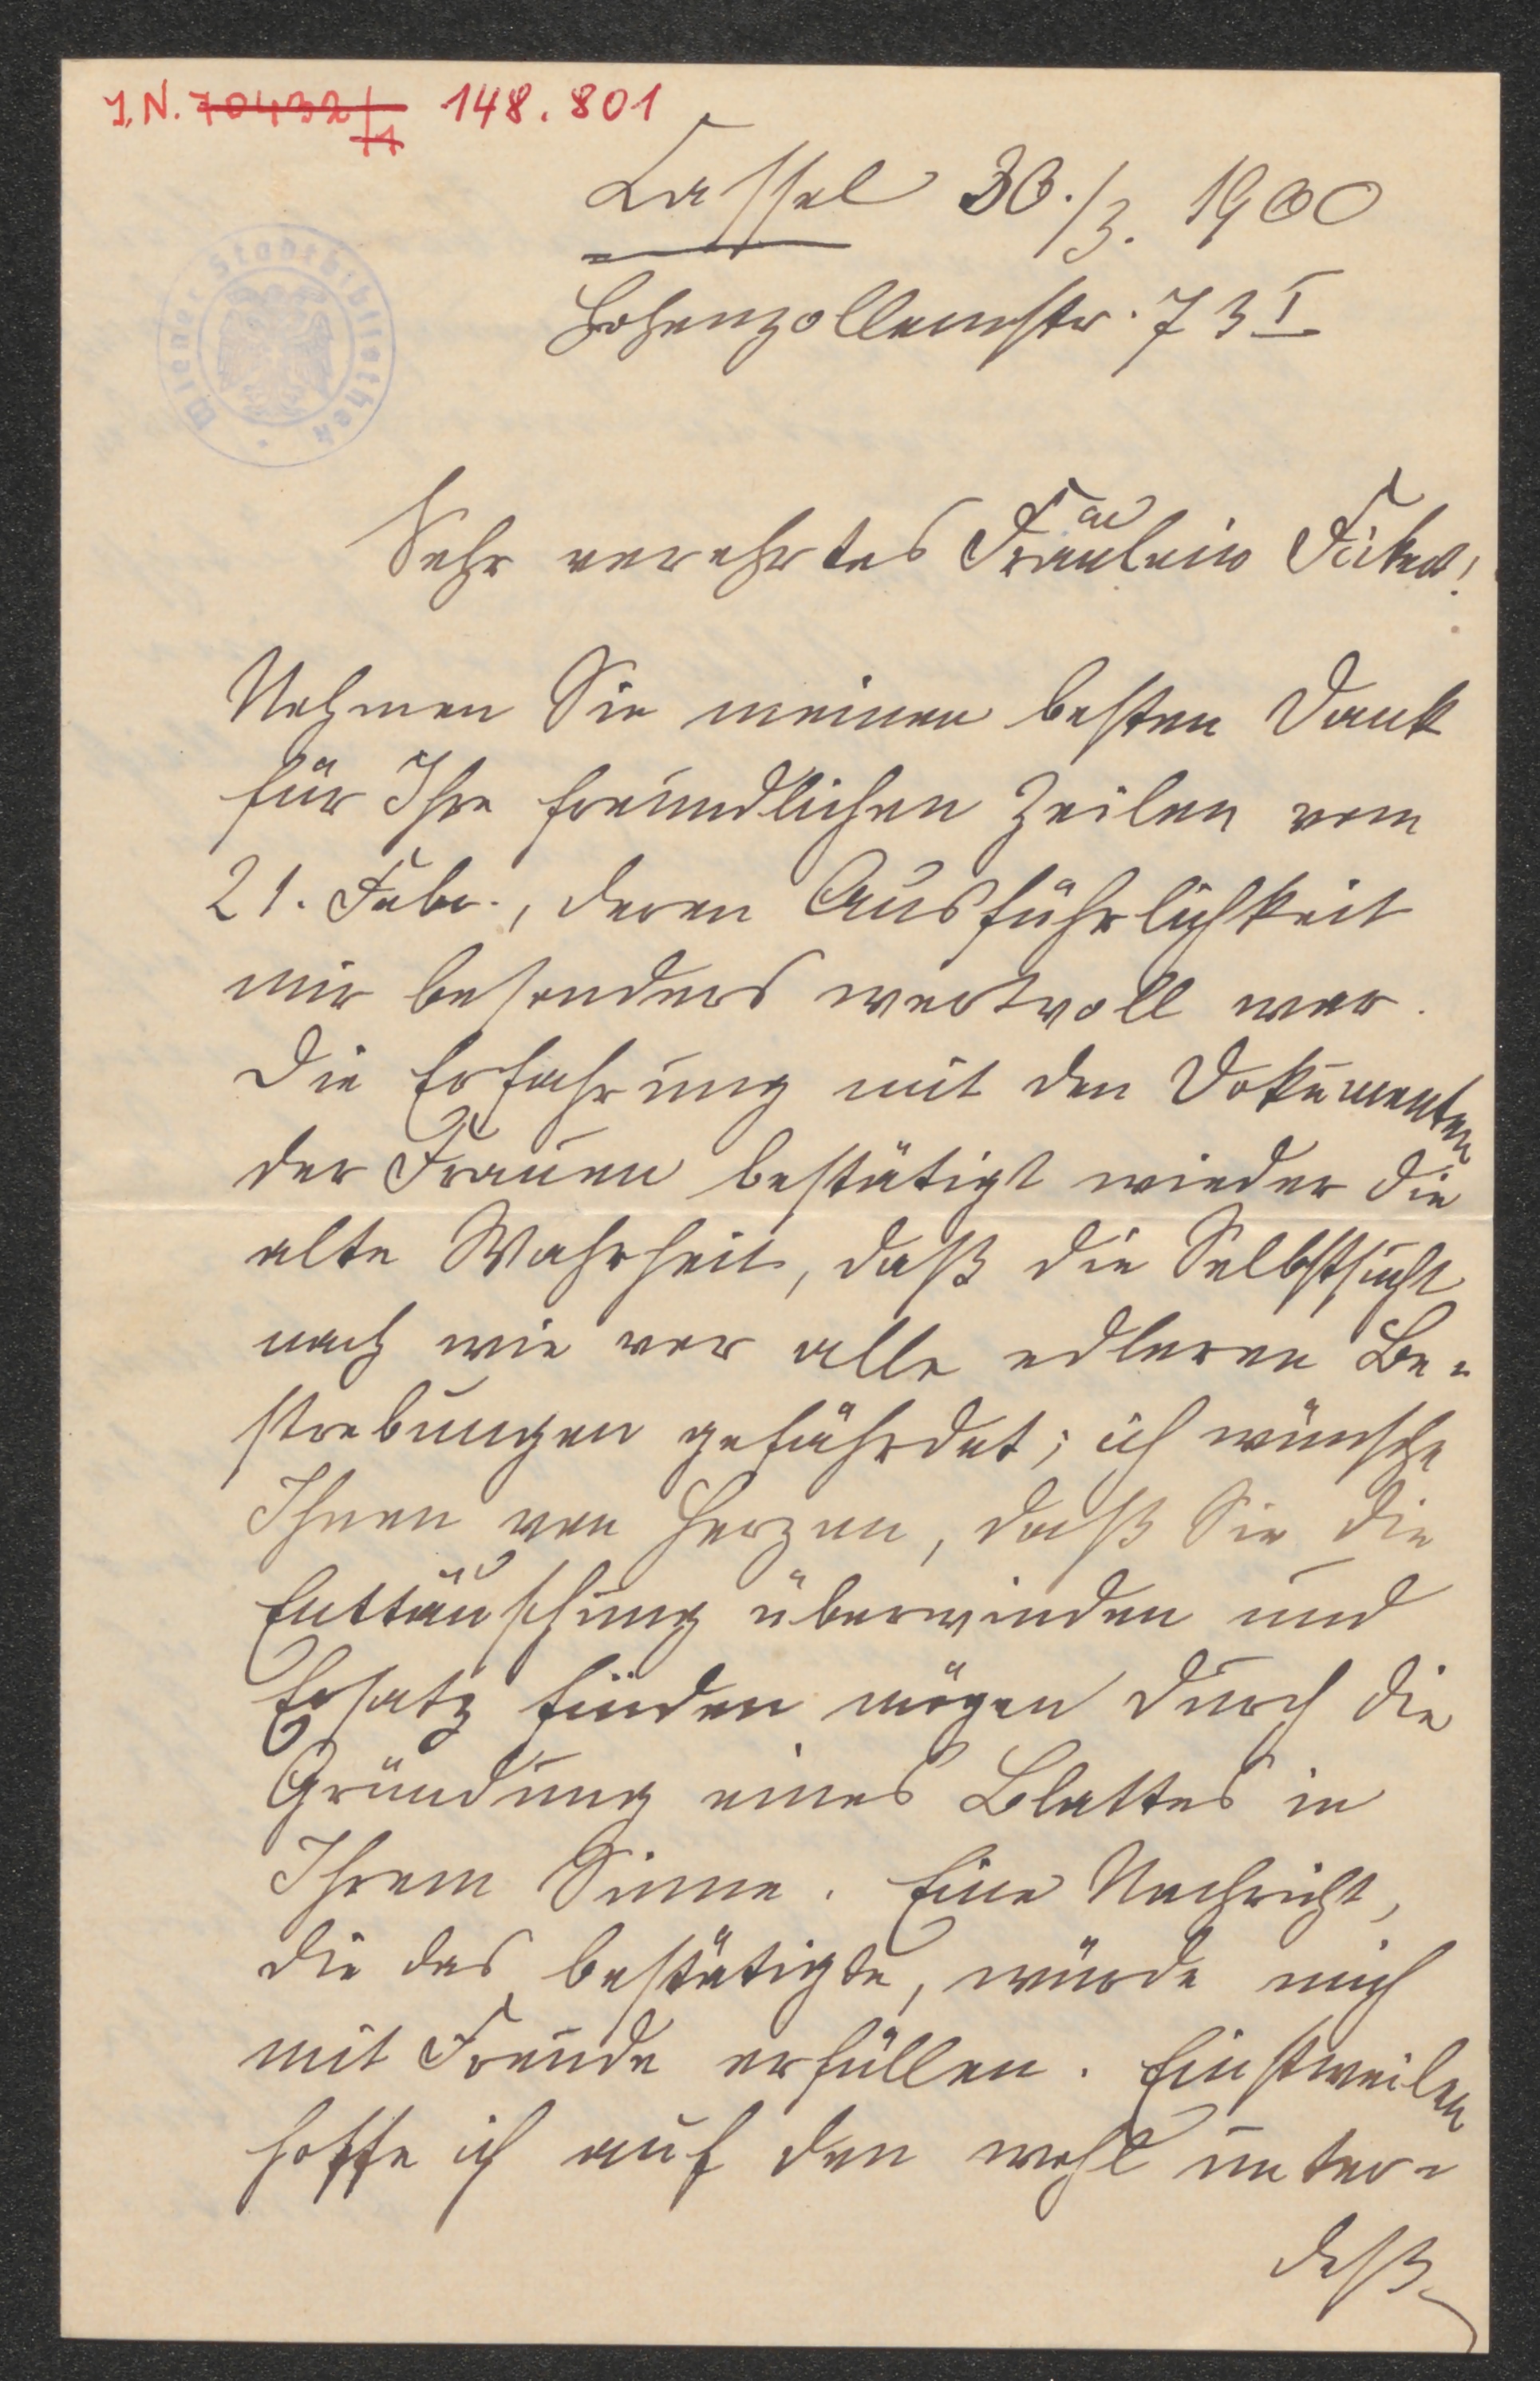 I.N. 70432/1 148.801
Wiener Stadtbibliothek
Cassel 30./3. 1900
Hohenzollernstr. 73 I
Sehr verehrtes Fräulein Fickert!
Nehmen Sie meinen besten Dank
für Ihre freundlichen Zeilen vom
21. Febr., deren Ausführlichkeit
mir besonders wertvoll war.
Die Erfahrung mit den Dokumenten
der Frauen bestätigt wieder die
alte Wahrheit, daß die Selbstsucht
nach wie vor alle edleren Be-
strebungen gefährdet; ich wünsche
Ihnen von Herzen, daß Sie die
Enttäuschung überwinden und
Ersatz finden mögen durch die
Gründung eines Blattes in
Ihrem Sinne. Eine Nachricht,
die das bestätigte, würde mich
mit Freude erfüllen. Einstweilen
hoffe ich auf den wohl unter-
deß